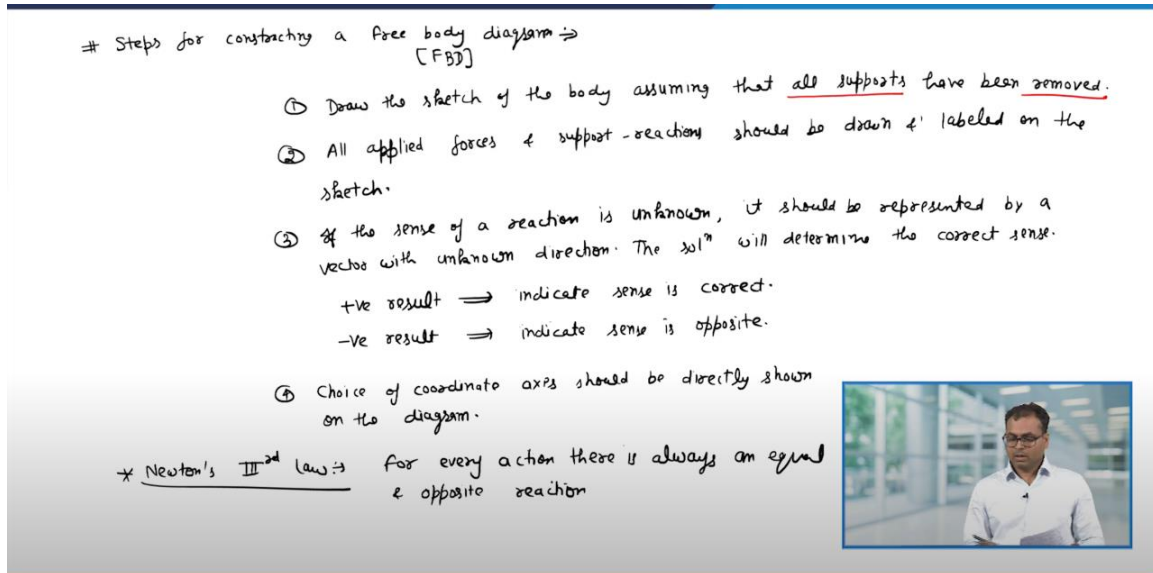 # Steps for constructing a free body diagram ⇒
[FBD]
① Draw the sketch of the body assuming that all supports have been removed.
② All applied forces & support-reactions should be drawn & labeled on the
sketch.
③ If the sense of a reaction is unknown, it should be represented by a
vector with unknown direction. The solⁿ will determine the correct sense.
+ve result ⟹ indicate sense is correct.
-ve result ⟹ indicate sense is opposite.
④ Choice of coordinate axes should be directly shown
on the diagram.
* Newton's IIIrd law ⇒ For every action there is always an equal
& opposite reaction